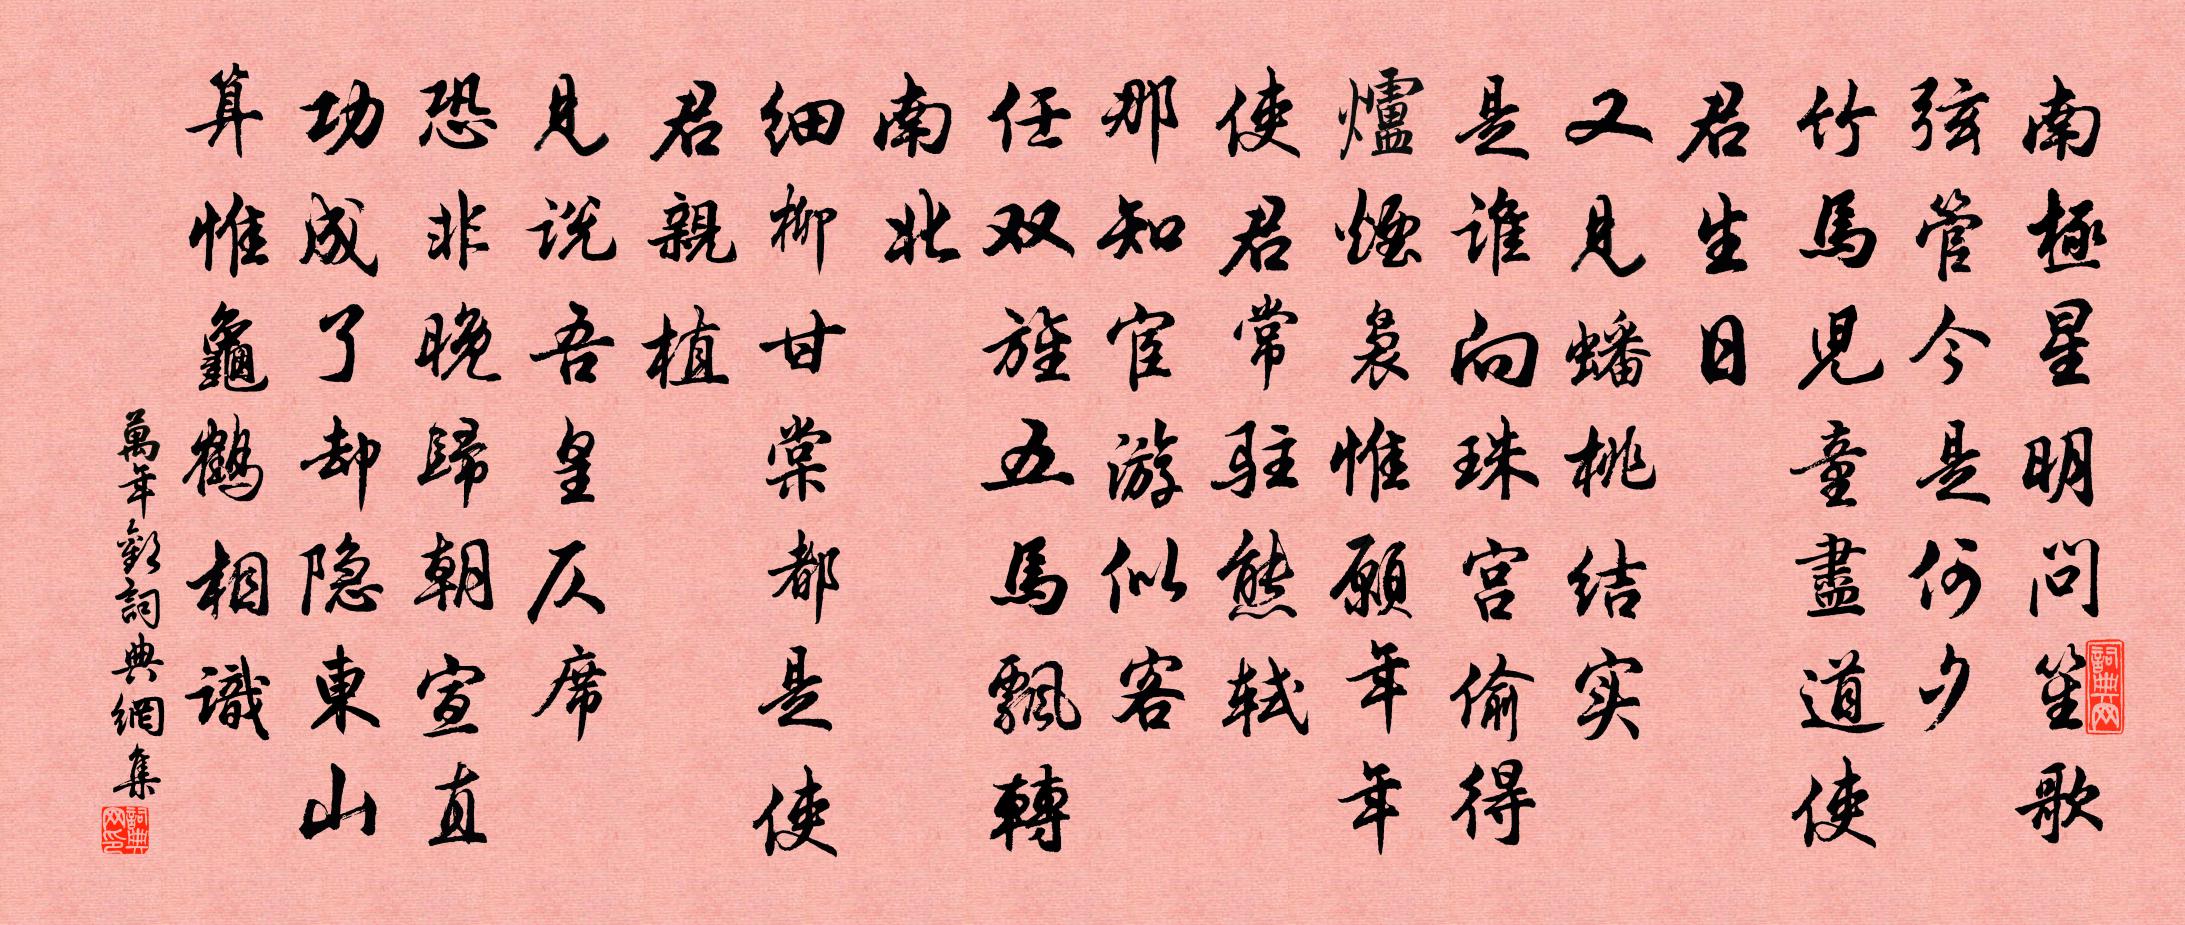 南極星明問笙歌
弦管今是何夕
竹馬兒童盡道使
君生日
又見蟠桃结实
是谁向珠宫偷得
爐煙裊惟願年年
使君常駐熊轼
那知宦游似客
任双旌五馬飄轉
南北
细柳甘棠都是使
君親植
見说吾皇仄席
恐非晚歸朝宣直
功成了却隐東山
算惟龜鶴相識
萬年歡詞典網集
詞典网
詞典网印